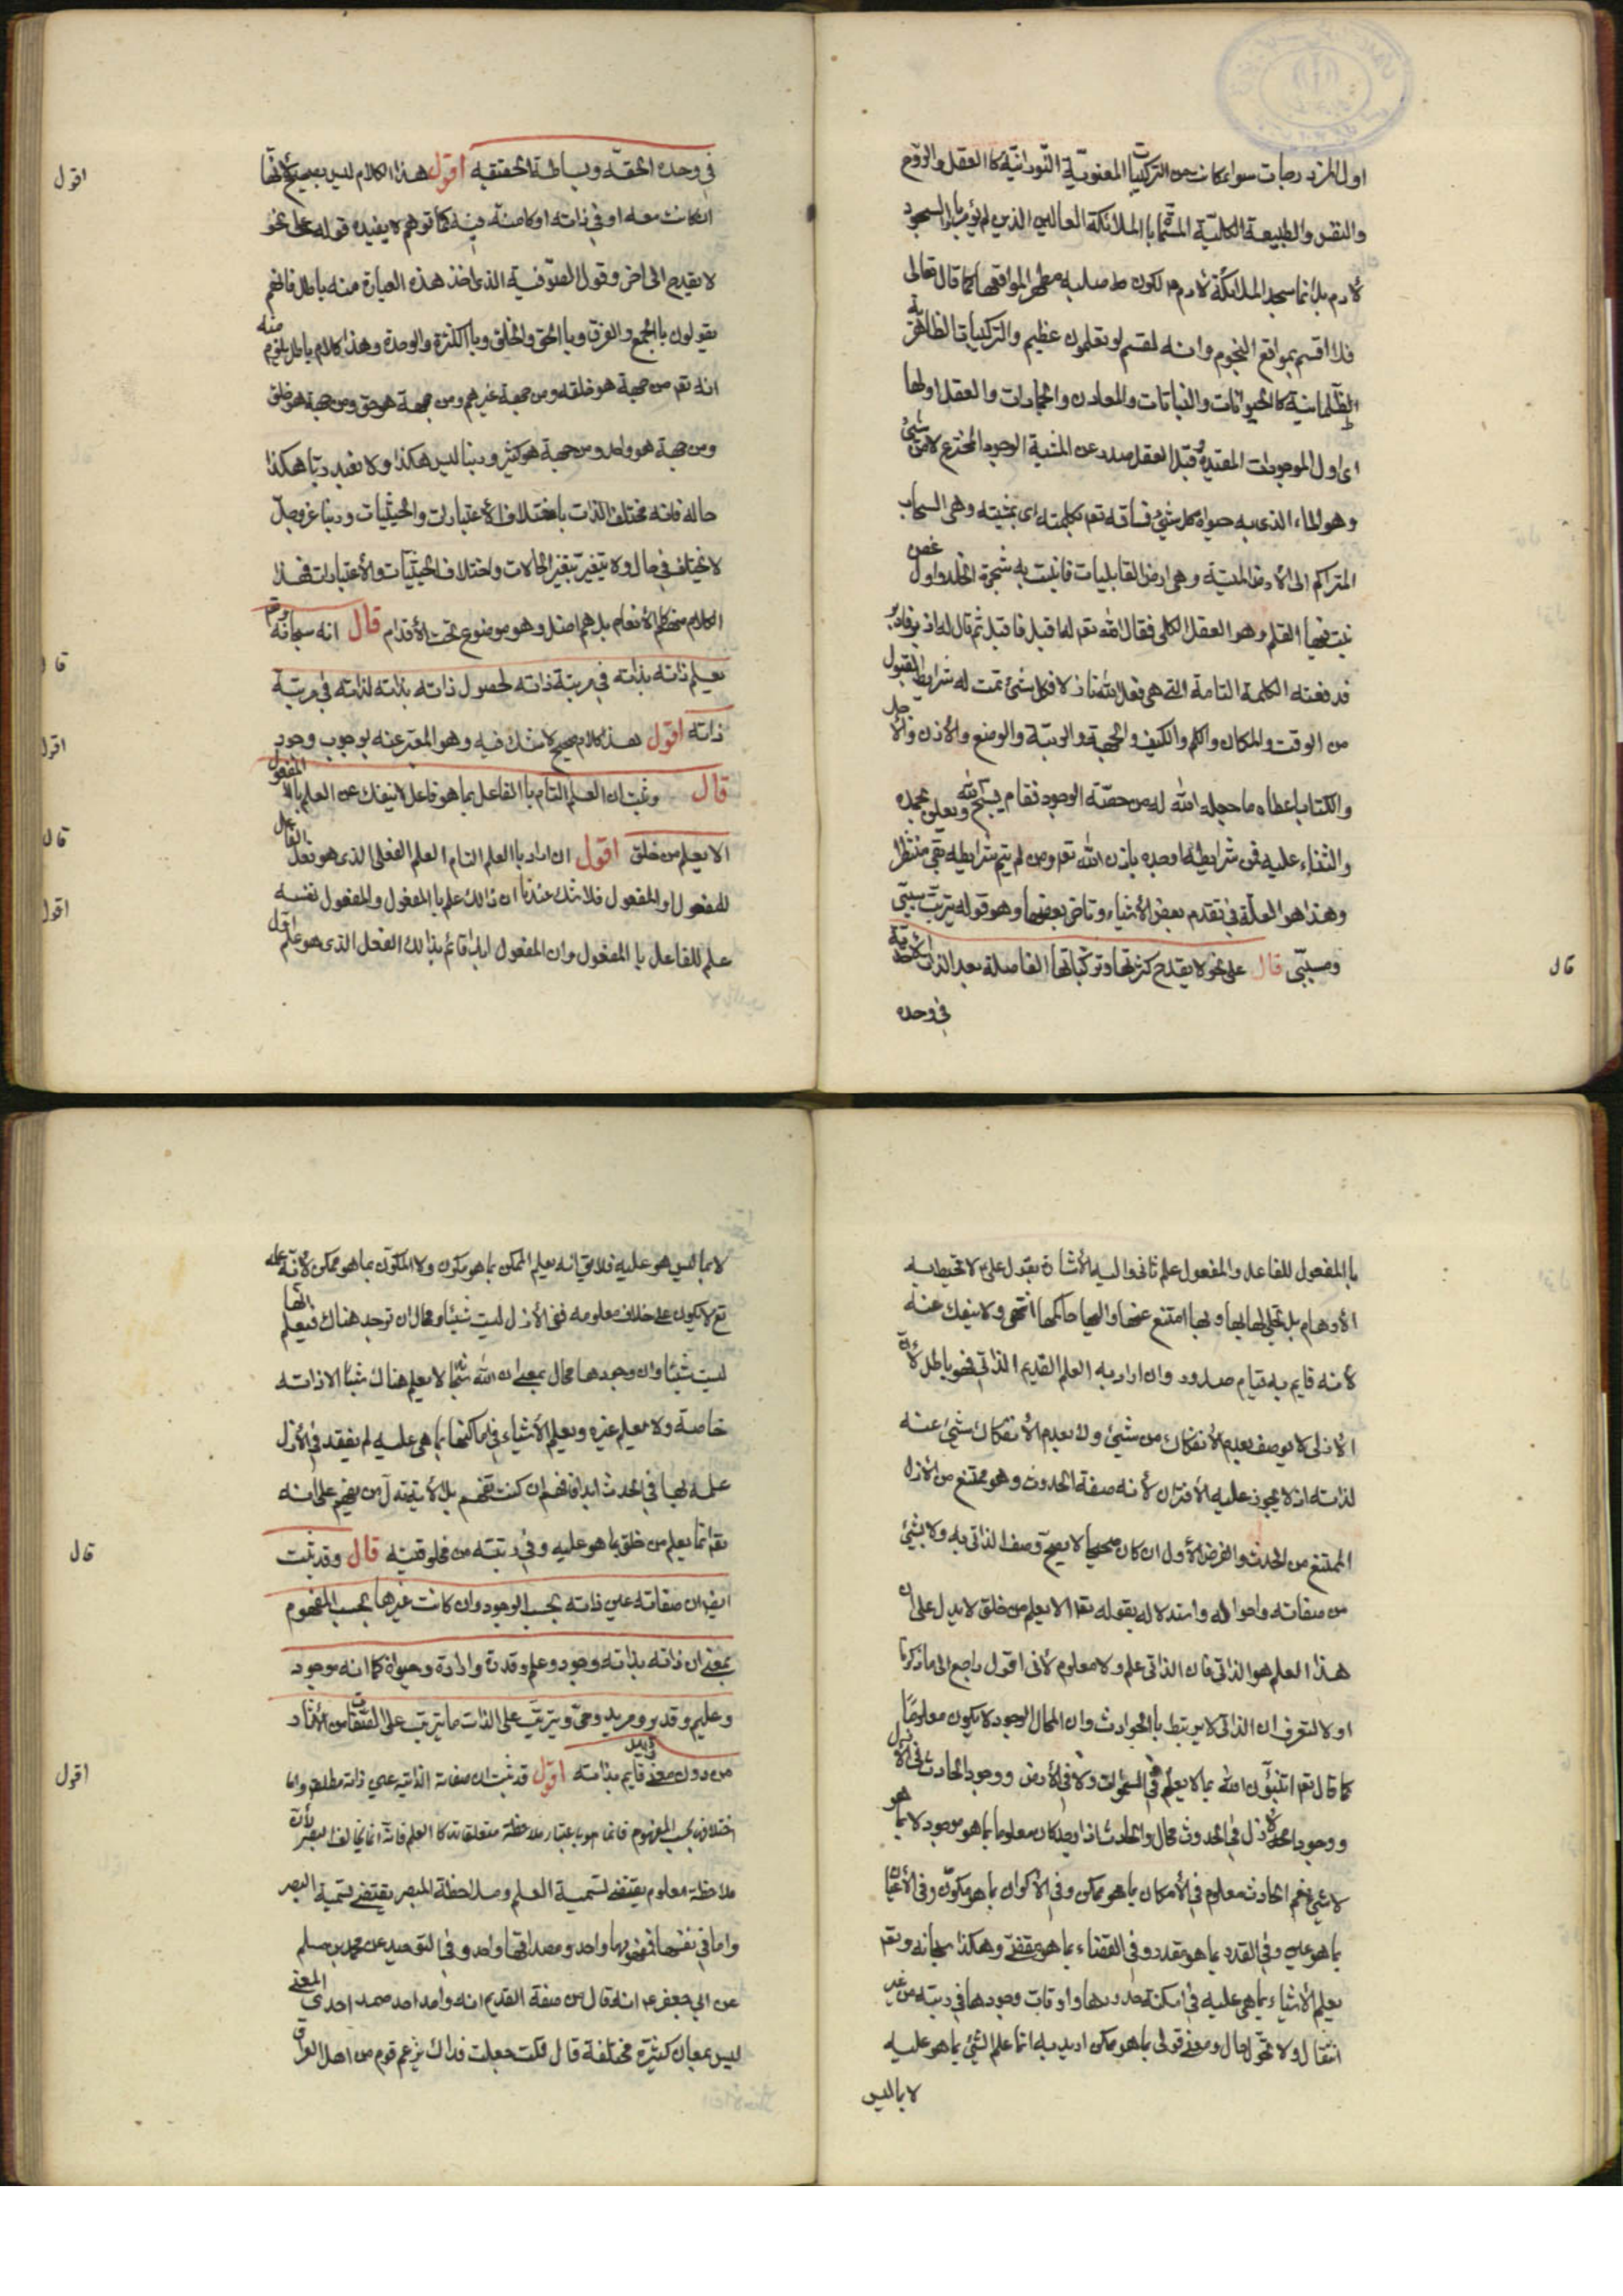 اول المزد رجات سواء كانت من التركيبات المعنوية النورانية كا العقل والروح
والنفس والطبيعة الكلية المسماة با الملائكة العالين الذين لم يؤمروا بالسجود
لآدم بل انما سجد الملائكة لآدم لكون صلبه مظهر المواقعها كما قال تعالى
فلا اقسم بمواقع النجوم وانه لقسم لو تعلمون عظيم والتركيبات الظاهرة
الظلمانية كا الحيوانات والنباتات والمعادن والجمادات والعقل اولها
اى اول الموجودات المقيدة وقبل العقل صدر عن المشية الوجود المخترع لا من شئ
وهو الماء الذى به حيوة كل شئ فساقه تعم بكلمته اى بمشيته وهى السحاب
المتراكم الى الأرض الميتة وهى ارض القابليات فانبت به شجرة الخلد واول غصن
نبت فيها القلم وهو العقل الكلى فقال الله تعم له اقبل فاقبل ثم قال له ادبر فادبر
فدفعته الكلمة التامة التى هى فعل الله فكل شئ تمت له شرايط القبول
من الوقت والمكان والكم والكيف والجهة والرتبة والوضع والأذن والأجل
والكتاب اعطاه ما جعله الله له من حصة الوجود فقام يسبح الله ويعلن بحمده
والثناء عليه فمن شرايطه اوجده باذن الله تعم ومن لم يتم شرايطه بقى منتظرا
وهذا هو العلة فى تقدم بعض الأشياء وتاخر بعضها وهو قوله بترتيب سببى
ومسببى قال على نحو لا يقدح كثرتها وتركباتها الفاصلة بعد الذات الأحدية
فى وحده
قال
فى وحده الحقة وبساطة الحقيقه اقول هذا الكلام ليس بصحيح لأنها
ان كانت معه او فى ذاته او كامنة فيه كما توهم لا يفيده قوله على نحو
لا يقدح الى اخر وقول الصوفية الذى اخذ هذه العبارة منه باطل فانهم
يقولون با الجمع والفرق وبا الحق والخلق وبا الكثرة والوحدة وهذا كلام باطل يلزم منه
انه تعم من جهة هو خلقه ومن جهة غيرهم ومن جهة هو حق ومن جهة هو خلق
ومن جهة هو واحد ومن جهة هو كثير وربنا ليس هكذا ولا نعبد ربا هكذا
حاله فانه مختلف الذات باختلاف الأعتبارات والحيثيات وربنا عز وجل
لا يختلف فى حال ولا يتغير بتغير الحالات واختلاف الحيثيات والأعتبارات فهذا
الكلام كالأنعام بل هم اضل وهو موضوع تحت الأقدام قال انه سبحانه
يعلم ذاته بذاته فى مرتبة ذاته لحصول ذاته بذاته لذاته فى مرتبة
ذاته اقول هذا كلام صحيح لا شك فيه وهو المعبر عنه بوجوب وجود
قال وثبت ان العلم التام با الفاعل بما هو فاعل لا ينفك عن العلم با المفعول
الا يعلم من خلق اقول ان اراد با العلم التام العلم الفعلى الذى هو فعل الفاعل
للمفعول او المفعول فلا شك عندنا ان ذالك علم با المفعول والمفعول نفسه
علم للفاعل با المفعول وان المفعول ابدا قائم بذالك الفعل الذى هو علم اول
اقول
قال
اقول
قال
اقول
با المفعول للفاعل والمفعول علم ثانى واليه الأشارة بقول على لا تحيط به
الأوهام بل تجلى لها بها وبها امتنع عنها واليها حاكمها انتهى ولا ينفك عنه
لأنه قايم به قيام صدور وان اراد به العلم القديم الذاتى فهو باطل لأن
الأزلى لا يوصف بعدم الأنفكاك من شيئ ولا بعدم الأنفكاك شيئ عنه
لذاته اذ لا يجوز عليه الأقتران لأنه صفة الحدوث وهو ممتنع من الأزل
الممتنع من الحدث والفرض الأول ان كان صحيحا لا يصح وصف الذاتى به ولا بشيئ
من صفاته واحواله واستدلاله بقوله تعم الا يعلم من خلق لا يدل على ان
هذا العلم هو الذاتى فان الذاتى علم ولا معلوم لأنى اقول راجع الى ما ذكرنا
اولا لتعرف ان الذاتى لا يرتبط با الحوادث وان المحال الوجود لا يكون معلوما
كما قال تعم اتنبؤن الله بما لا يعلم فى السموات ولا فى الأرض ووجود الحادث فى الأزل
ووجود الأزل فى الحدوث محال والحادث اذا وجد كان معلوما بما هو موجود لا بما هو
لا شيئ نعم الحادث معلوم فى الأمكان بما هو ممكن وفى الأكوان بما هو مكون وفى الأعيان
بما هو عين وفى القدر بما هو مقدر وفى القضاء بما هو مقضى وهكذا سبحانه وتعم
يعلم الأشياء بما هى عليه فى امكنة حدودها واوقات وجودها فى رتبته من غير
انتقال ولا تحول حال ومعنى قولى بما هو ممكن اريد به انما علم الشيئ بما هو عليه
لا بما ليس
لا بما ليس هو عليه فلا يق انه يعلم الممكن بما هو مكون ولا المكون بما هو ممكن لأن علمه
تع لا يكون على خلاف معلومه ففى الأزل ليست شيئا ومحال ان توجد هناك فيعلم انها
ليست شيئا وان وجودها محال بمعنى ان الله لا يعلم هناك شيئا الا ذاته
خاصة ولا يعلم غيره ويعلم الأشياء فى اماكنها بما هى عليه لم يفقد فى الأزل
علمه بها فى الحدث ابدا فافهم ان كنت تفهم بل الأية تدل من يفهم على انه
تعم انما يعلم من خلق بما هو عليه وفى رتبته من مخلوقيته قال وقد ثبت
ايضا ان صفاته عين ذاته بحسب الوجود وان كانت غيرها بحسب المفهوم
بمعنى ان ذاته بذاته وجود وعلم وقدرة وارادة وحيوة كما انه موجود
وعليم وقدير ومريد وحى ويترتب على الذات ما يترتب على الصفات من الأثار
من دون معنى قايم بذاته اقول قد ثبت ان صفاته الذاتية عين ذاته مطلقا واما
اختلافها بحسب المفهوم فانما هو باعتبار ملاحظة متعلقاته كا العلم فانه انما يخالف البصر لأن
ملاحظة المعلوم يقتضى تسمية العلم وملاحظة المبصر يقتضى تسمية البصر
واما فى نفسها فمفهومها واحد ومصداقها واحد وفى التوحيد عن محمد بن مسلم
عن ابى جعفر ع انه قال من صفة القديم انه واحد احد صمد احدى المعنى
ليس بمعان كثيرة مختلفة قال قلت جعلت فداك يزعم قوم من اهل العراق
قال
اقول